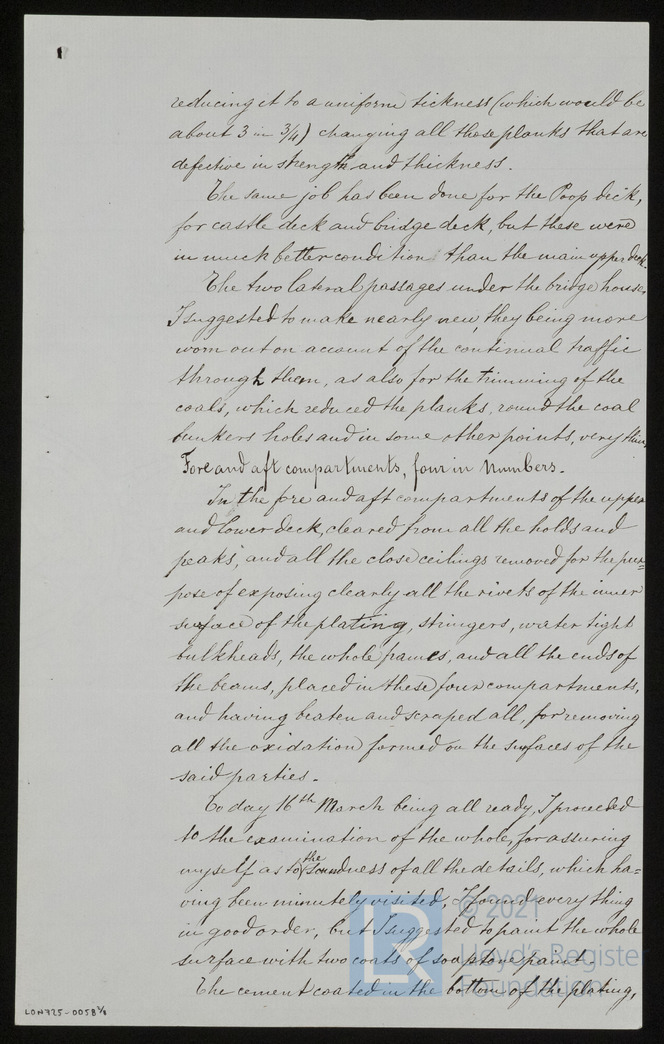 reducing it to a uniform tickness (which would be
about 3 in 3/4) changing all these planks that are
defective in strength and thickness.
The same job has been done for the Poop deck,
for castle deck and bridge deck, but these were
in much better condition than the main upper deck.
The two lateral passages under the bridge house,
I suggested to make nearly new, they being more
worn out on account of the continual traffic
through them, as also for the trimming of the
coals, which reduced the planks, round the coal
bunkers holes and in some other points, very thin.
Fore and aft compartments, four in Numbers.
In the fore and aft compartments of the upper
and lower deck, cleared from all the holds and
peaks, and all the close ceilings removed for the pur=
pose of exposing clearly all the rivets of the inner
surface of the plating, stringers, water tight
bulkheads, the whole frames, and all the ends of
the beams, placed in these four compartments,
and having beaten and scraped all, for removing
all the oxidation formed on the surfaces of the
said parties.
To day 16th March being all ready, I proceeded
to the examination of the whole, for assuring
myself as to the soundness of all the details, which ha=
ving been minutely visited, I found every thing
in good order, but I suggested to paint the whole
surface with two coats of soapstone paint.
The cement coated in the bottom of the plating,
© 2021
Lloyd's Register
Foundation
LON725-0058 1/8